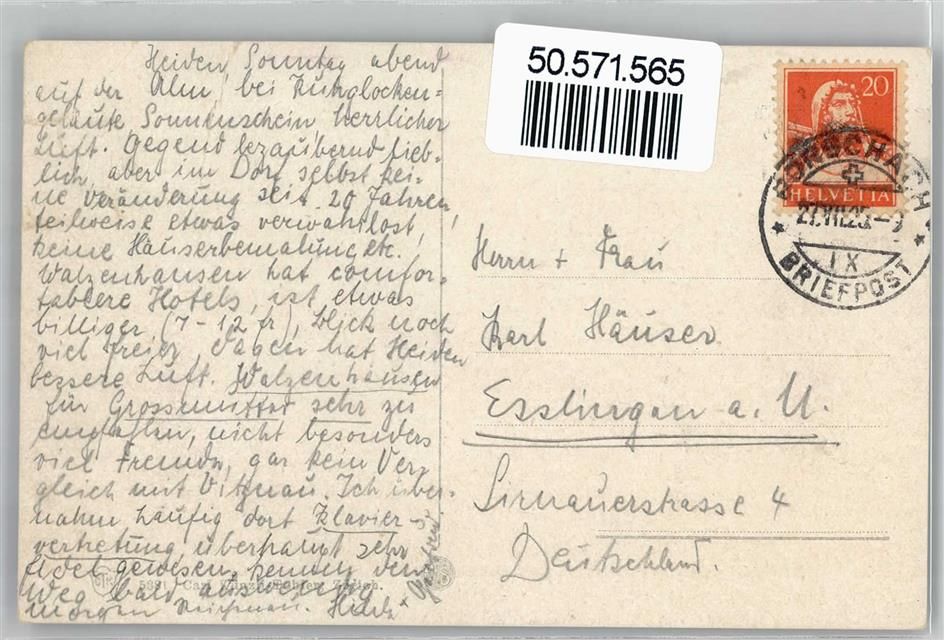 50.571.565
20
HELVETIA
RORSCHACH
27.VII.25.-9
IX
BRIEFPOST
Heiden, Sonntag abend
auf der Alm, bei Kuhglocken=
geläute Sonnenschein, herrlicher
Luft. Gegend bezaubernd lieb-
lich, aber im Dorf selbst kei-
ne Veränderung seit 20 Jahren,
teilweise etwas verwahrlost,
keine Häuserbemalung etc.
Walzenhausen hat comfor-
tablere Hotels, ist etwas
billiger (7-12 fr), Blick noch
viel freier, dagegen hat Heiden
bessere Luft. Walzenhausen
für Grossmutter sehr zu
empfehlen, nicht besonders
viel Fremde, gar kein Ver-
gleich mit Vitznau. Ich über-
nahm häufig dort Klavier-
vertretung, überhaupt sehr
fidel gewesen, kennen den
Weg bald auswendig
morgen
Herrn + Frau
Karl Häuser
Esslingen a. N.
Sirnauerstrasse 4
Deutschland.
5381 Carl Künzli-Tobler, Zürich.